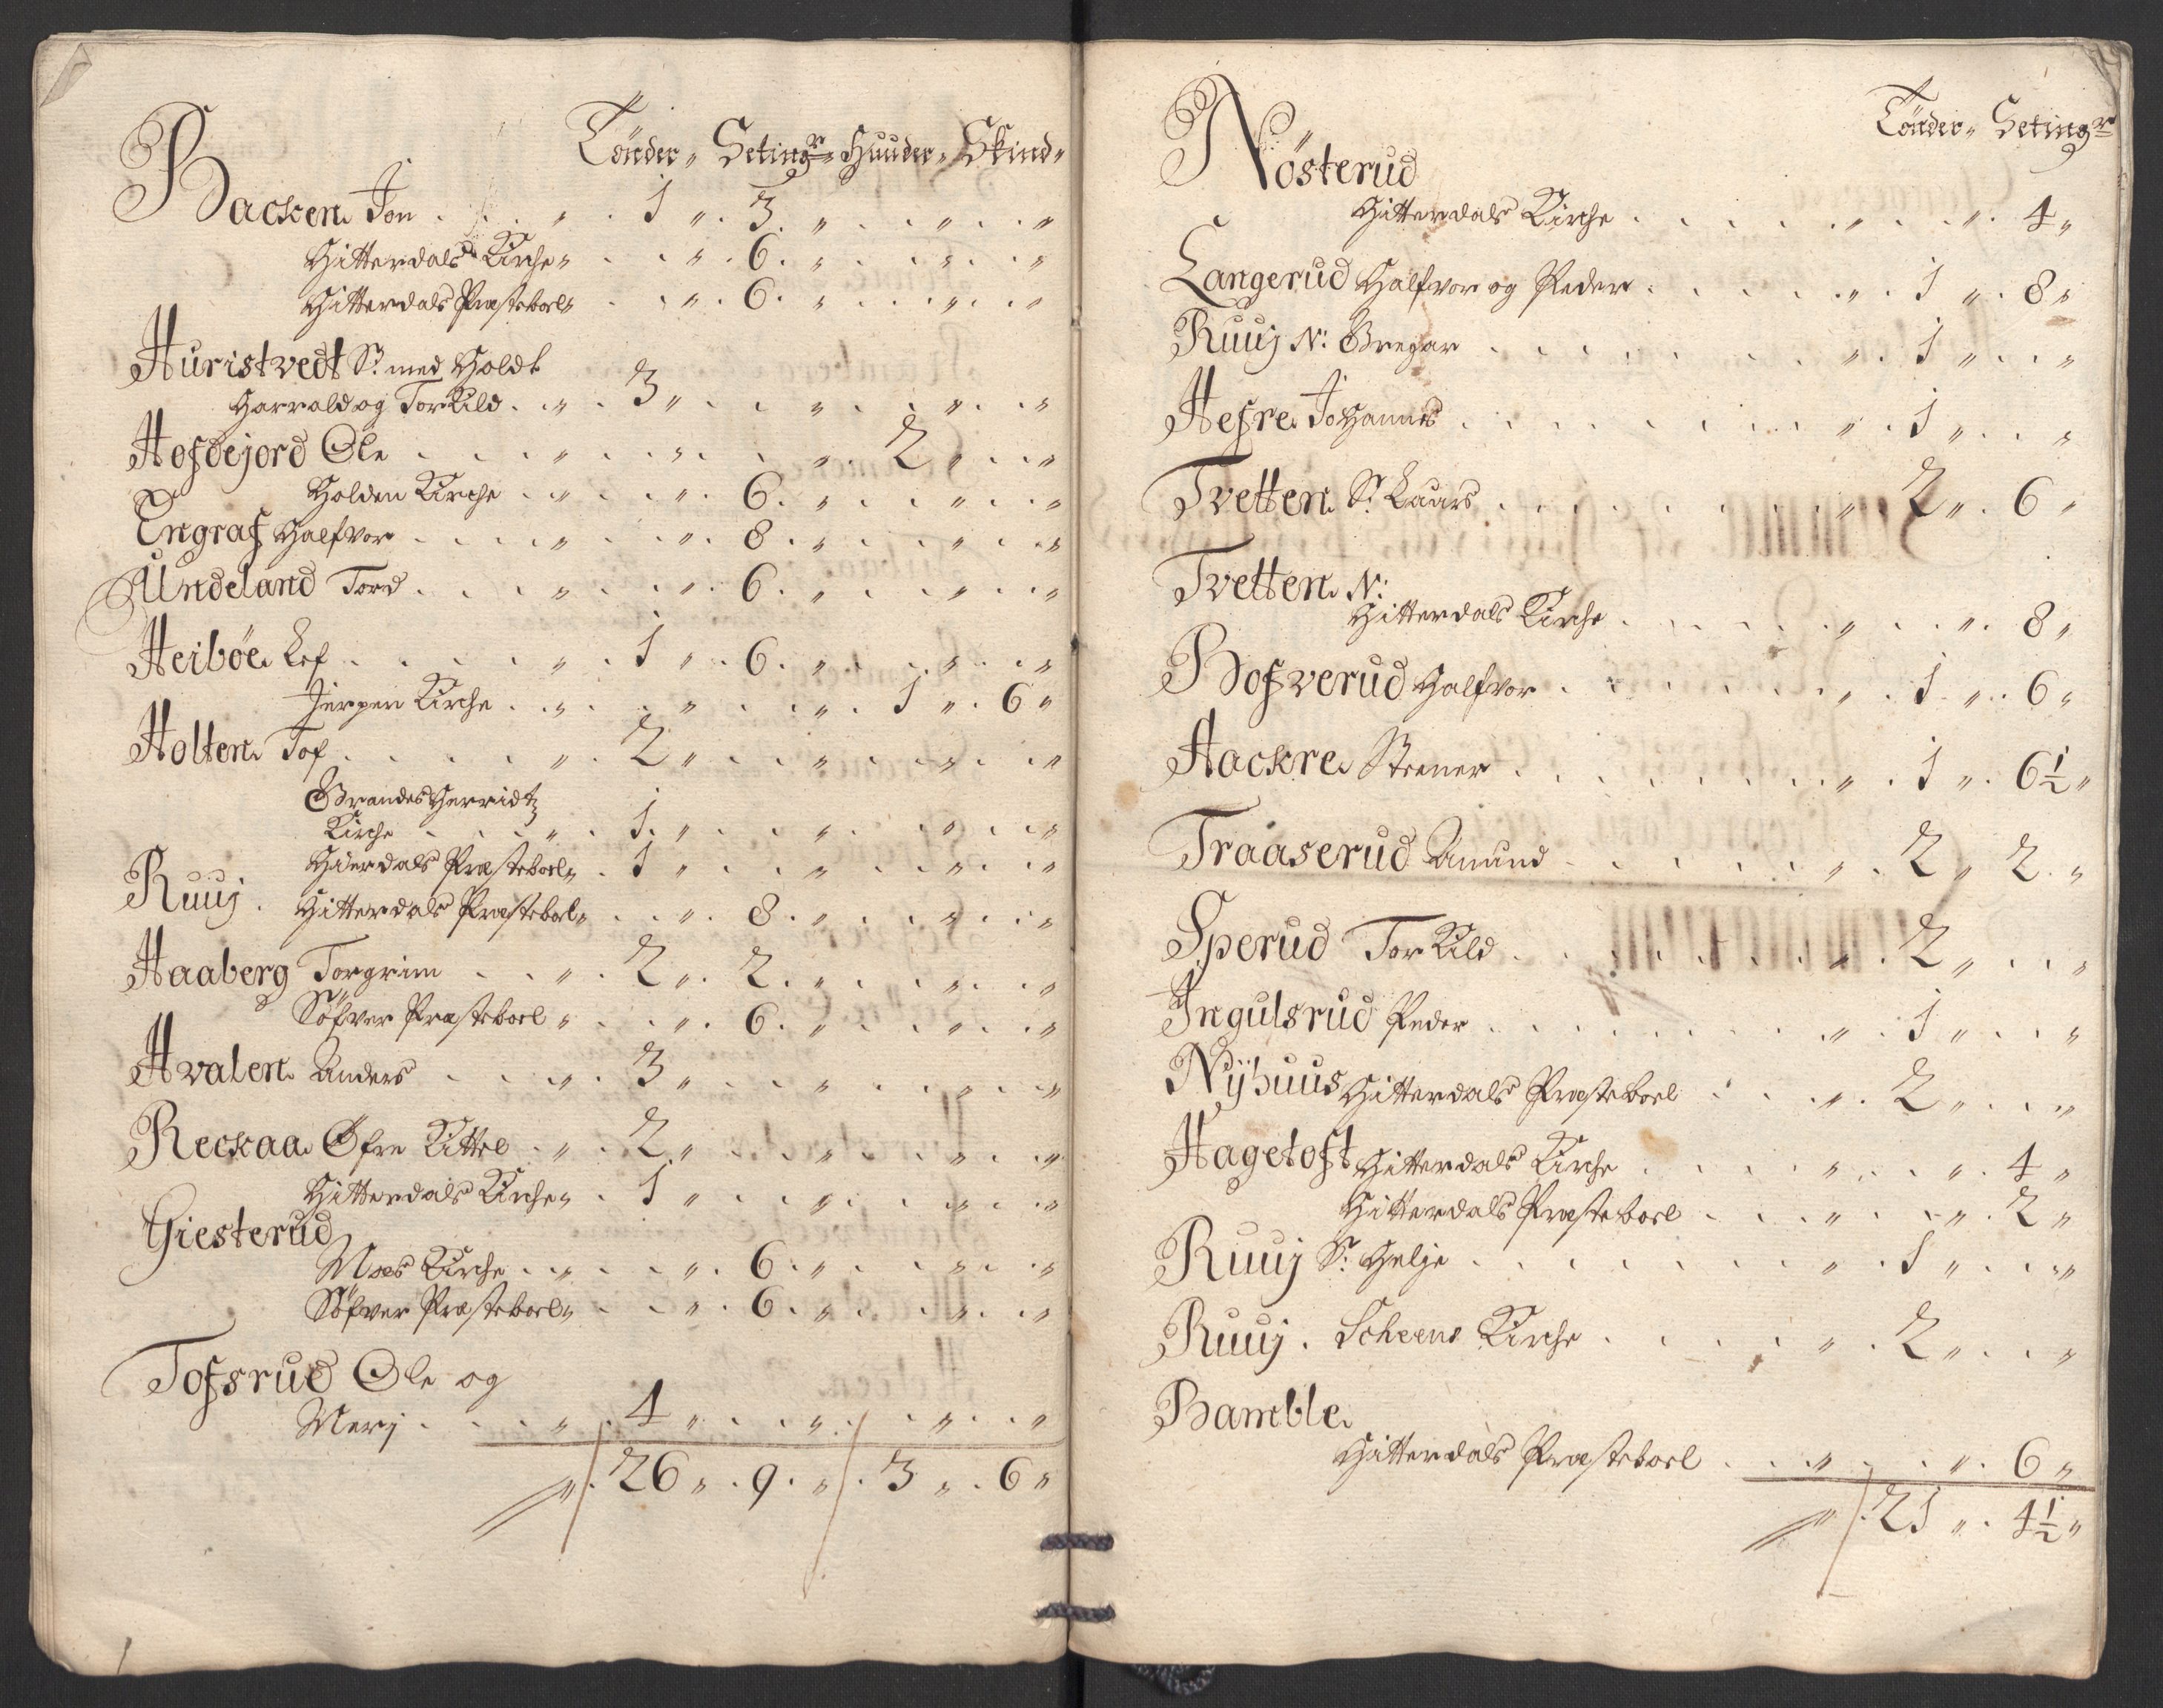 Tönder„ Setingr„ Huuder„ Skind„
Backen Jon . . . „ . 1 „ . 3 . „ . . „ . . „
Hitterdals Kirche„ . . „ . 6 . „ . . „ . . „
Hitterdals Præsteboel„ . . „ . 6 . „ . . „ . . „
Huristvedt S: med Holdt
Harrald og Torkild . „ . 3 „ . . „ . . „ . . „
Hofdejord Ole . . . „ . . „ . . „ . 2 „ . . „
Holden Kirche . „ . . „ . 6 . „ . . „ . . „
Engraf Halfvor . . . „ . . „ . 8 . „ . . „ . . „
Undeland Tord . . . „ . . „ . 6 . „ . . „ . . „
Heibøe Lef . . . . „ . 1 „ . 6 . „ . . „ . . „
Jerpen Kirche . „ . . „ . . . „ . 1 „ . 6 „
Holten Tof . . . . „ . 2 „ . . „ . . „ . . „
Grandesherridtz
Kirche . . . „ . 1 . „ . . „ . . „ . . „
Hierdals Præsteboel„ . 1 „ . . „ . . „ . . „
Ruuj . Hitterdals Præsteboel„ . . „ . 8 . „ . . „ . . „
Haaberg Torgrim . . „ . 2 „ . 2 . „ . . „ . . „
Söfver Præsteboel „ . . „ . 6 . „ . . „ . . „
Hvalen Anders . . . „ . 3 „ . . „ . . „ . . „
Reckaa Øfre Kittel . „ . 2 „ . . „ . . „ . . „
Hitterdals Kirche„ . 1 „ . . „ . . „ . . „
Giesterud
Moes Kirche . „ . . „ . 6 . „ . . „ . . „
Söfver Præsteboel„ . . „ . 6 . „ . . „ . . „
Tofsrud Ole og
Merj . . . „ . 4 „ . . „ . . „ . . „
„ . 26 „ . 9 . „ . 3 „ . 6 „
Tönder„ Setingr
Nösterud
Hitterdals Kirche . . . . „ . . „ . 4 „
Langerud Halfvor og Peder . . . . „ . 1 „ . 8 „
Ruuj N: Gregar . . . . . . „ . 1 „ . . „
Hefre Johannes . . . . . . „ . 1 „ . . „
Tvetten S: Laars . . . . . . „ . 2 „ . 6 „
Tvetten N:
Hitterdals Kirche . . . . „ . . „ . 8 „
Bofverud Halfvor . . . . . „ . 1 „ . 6 „
Hackre Steener . . . . . . „ . 1 „ . 6½ „
Traaserud Amund . . . . . „ . 2 „ 2 . „
Sperud Torkild . . . . . . „ . 2 „ . . „
Ingulsrud Peder . . . . . . „ . 1 „ . . „
Nÿhuus Hitterdals Præsteboel . . „ . 2 „ . . „
Hagetoft Hitterdals Kirche . . . . „ . . „ . 4 „
Hitterdals Præsteboel . . . „ . . „ . 2 „
Ruuj S: Helje . . . . . . . „ . 1 „ . . „
Ruuj . Scheens Kirche . . . . „ . 2 „ . . „
Bamble
Hitterdals Præsteboel . . „ . . „ . 6 „
„ . 21 „ . 4½ „